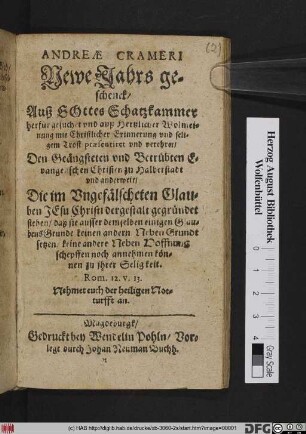 (2)
ANDREÆ CRAMERI
Newe Jahrs ge-
schenck/
Auß GOttes Schatzkammer
herfür gesuchet und auß Hertzlicher Wolmei-
nung mit Christlicher Erinnerung und seli-
gem Trost præsentiret und verehret/
Den Geängsteten und Betrübten E-
vangelischen Christen zu Halberstadt
und anderweit/
Die im Ungefälscheten Glau-
ben JEsu Christi dergestalt gegründet
stehen/ daß sie ausser demselben einigen Glau-
bens Grunde keinen andern Neben Grundt
setzen/ keine andere Neben Hoffnung
schepffen noch annehmen kön-
nen zu ihrer Seligkeit.
Rom. 12. v. 13.
Nehmet euch der heiligen Not-
turfft an.
Magdeburgk/
Gedruckt bey Wendelin Pohln/ Vor-
legt durch Johan Neuman Buchh.
Herzog August Bibliothek
Wolfenbüttel
(c) HAB http://diglib.hab.de/drucke/xb-3060-2s/start.htm?image=00001
DFG